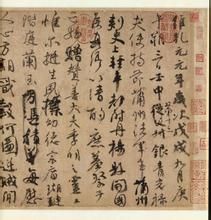 維乾元元年歲次戊戌九月庚
午朔三日壬申第十三叔銀青光祿
夫使持節蒲州諸軍事蒲州
刺史上輕車都尉丹楊縣開國
侯真卿以清酌庶羞祭于
亡姪贈贊善大夫季明之靈
惟爾挺生夙標幼德宗廟瑚璉
階庭蘭玉每慰
人心方期戩穀何圖逆賊間